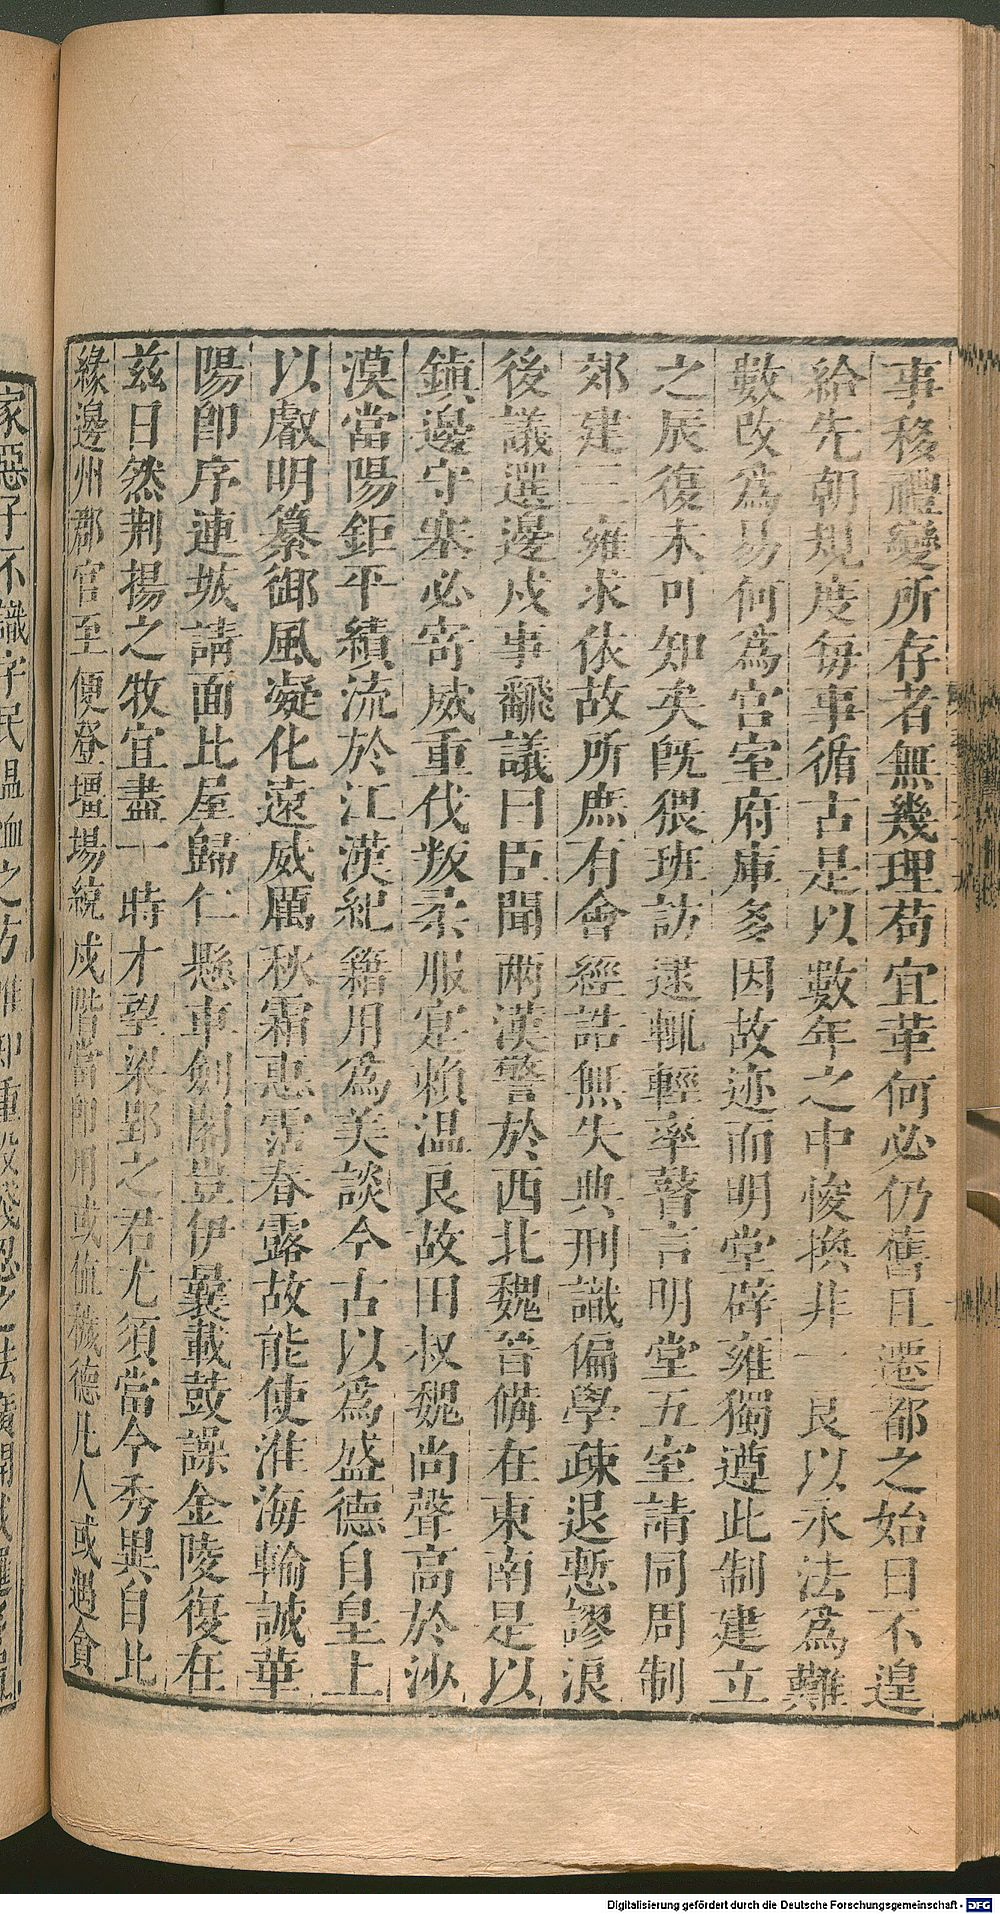 事移禮變所存者無幾理苟宜革何必仍舊且遷都之始日不遑
給先朝規度每事循古是以數年之中悛換非一良以永法為難
數改為易何為宮室府庫多因故迹而明堂辟雍獨遵此制建立
之辰復未可知矣既猥班訪逮輒輕率瞽言明堂五室請同周制
郊建三雍求依故所庶有會經誥無失典刑識偏學疎退慙謬浪
後議選邊戍事飜議曰臣聞兩漢警於西北魏晉備在東南是以
鎮邊守塞必寄威重伐叛柔服寔賴温良故田叔魏尚聲高於沙
漠當陽鉅平績流於江漢紀籍用為美談今古以為盛德自皇上
以叡明纂御風凝化遠威厲秋霜惠霑春露故能使淮海輸誠華
陽卽序連城請面比屋歸仁懸車劍閣豈伊曩載鼓譟金陵復在
茲日然荆揚之牧宜盡一時才望梁郢之君尤須當今秀異自比
緣邊州郡官至便登壃場統戍階當卽用或値穢德凡人或遇貪
家惡子不識字民温恤之方唯知重役殘忍之法廣開戍邏
Digitalisierung gefördert durch die Deutsche Forschungsgemeinschaft - DFG